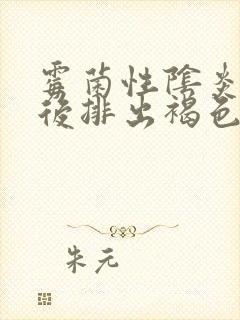 霉菌性陰炎
後排出褐色
朱元